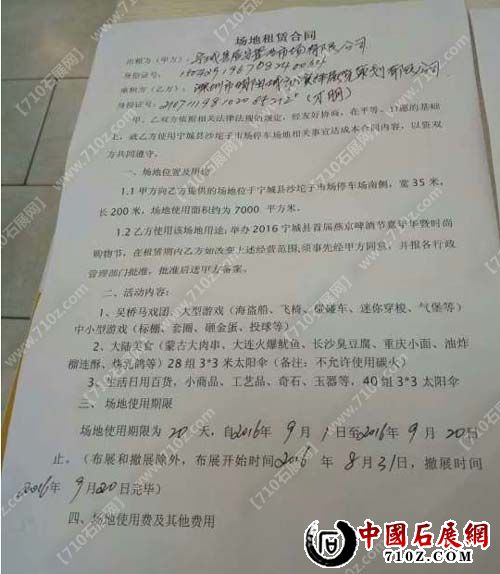 场地租赁合同
出租方（甲方）：
身份证号：
承租方（乙方）：
身份证号：
甲、乙双方依据相关法律法规的规定，经友好协商，在平等、自愿的基础
上，就乙方使用宁城县沙坨子市场停车场地相关事宜达成本合同内容，以资双
方共同遵守。
一、场地位置及用途
1.1 甲方向乙方提供的场地位于宁城县沙坨子市场停车场南侧，宽 35 米，
长 200 米，场地使用面积约为 7000 平方米。
1.2 乙方使用该场地用途：举办 2016 宁城县首届燕京啤酒节嘉年华暨时尚
购物节，在租赁期内乙方如改变上述经营范围，须事先经甲方同意，并报各行政
管理部门批准，批准后送甲方备案。
二、活动内容：
1、吴桥马戏团、大型游戏（海盗船、飞椅、碰碰车、迷你穿梭、气堡等）
中小型游戏（标棚、套圈、砸金蛋、投球等）
2、大陆美食（蒙古大肉串、大连火爆鱿鱼、长沙臭豆腐、重庆小面、油炸
榴莲酥、炸乳鸽等）28 组 3*3 米太阳伞（备注：不允许使用碳火）
3、生活日用百货，小商品、工艺品、奇石、玉器等，40 组 3*3 太阳伞
三、场地使用期限
场地使用期限为 20 天，自 2016 年 9 月 1 日至 2016 年 9 月 20 日
止。（布展和撤展除外，布展开始时间 2016 年 8 月 31 日，撤展时间
2016 年 9 月 20 日完毕）
四、场地使用费及其他费用
【710石展网】
www.710z.com
中國石展網
710Z.COM